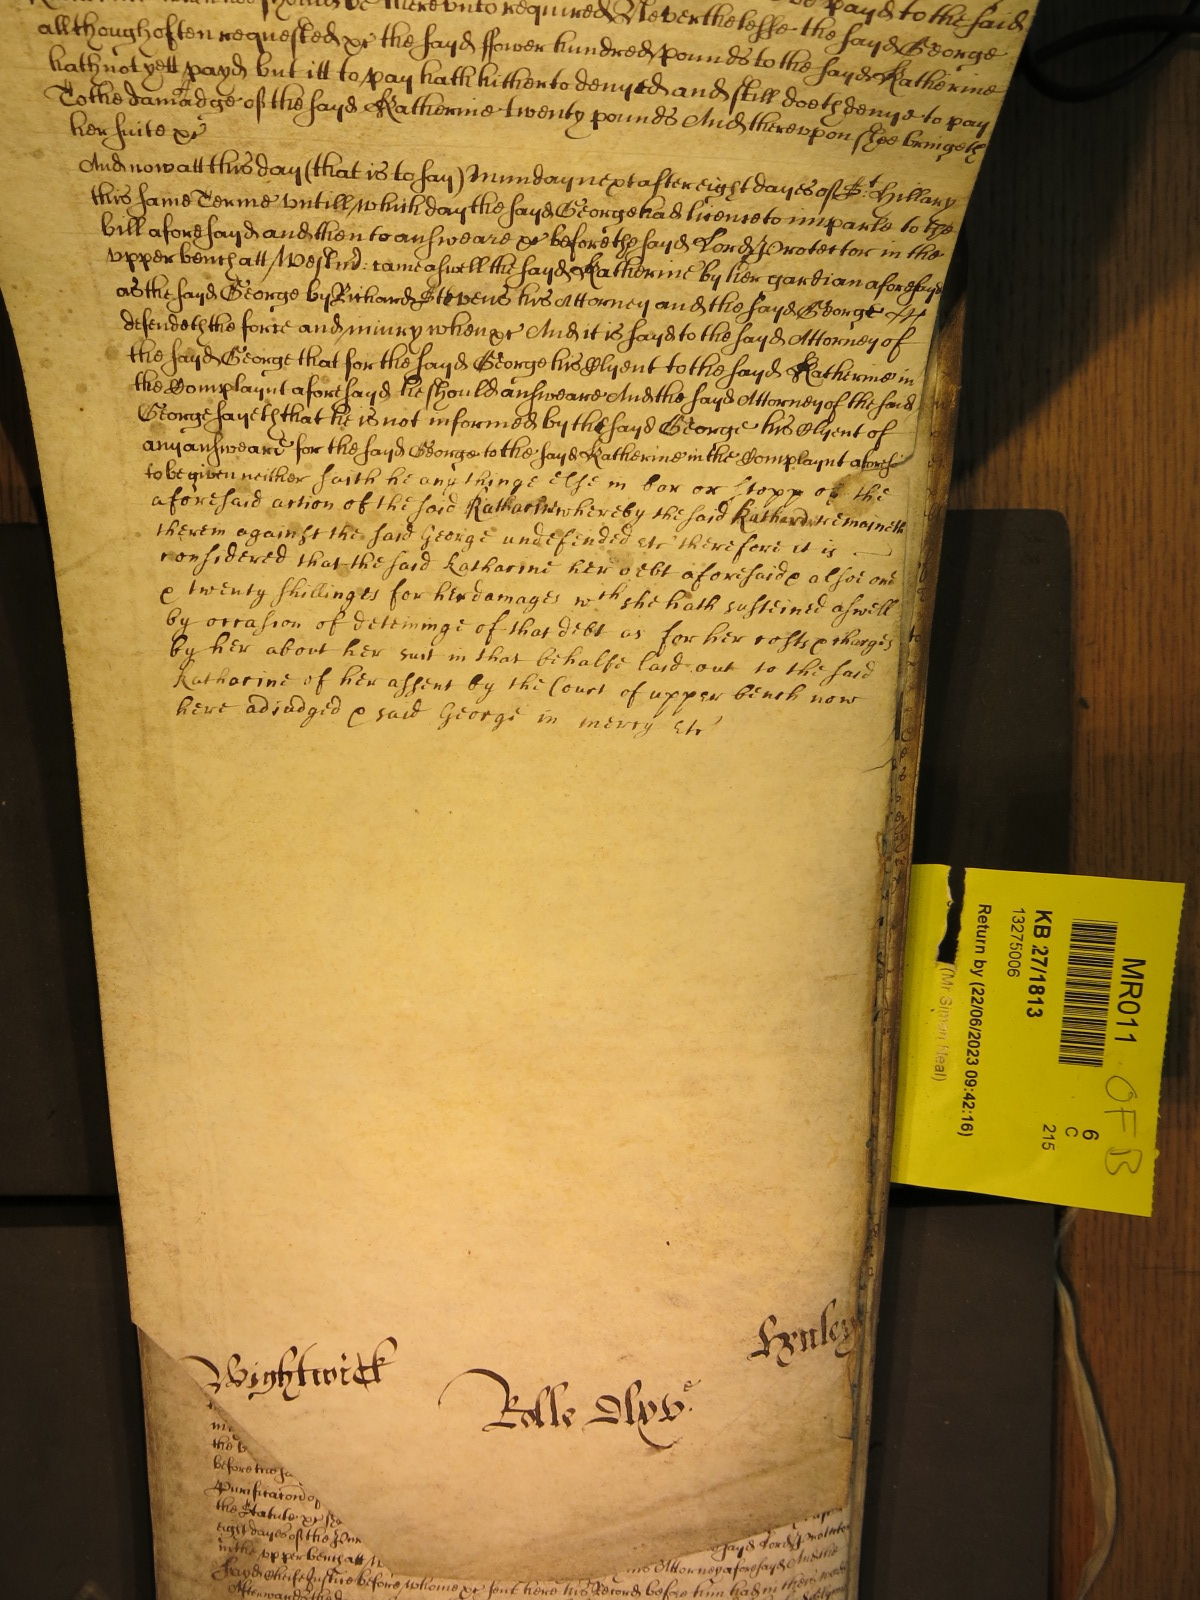 thereunto required Neverthelesse the sayd George
allthough often requested &c the sayd ffower hundred pounds to the sayd Katherine
hath not yett payd but itt to pay hath hitherto denyed and still doeth denye to pay
To the damadge of the sayd Katherine twenty pounds And therevpon shee bringeth
her suite &c
And now att this day (that is to say) Munday next after eight dayes of St. Hillary
this same Terme vntill which day the sayd George had licence to imparle to the
bill aforesayd and then to answeare &c before the sayd Lord Protector in the
vpper bench att Westmr: came aswell the sayd Katherine by her gardian aforesayd
as the sayd George by Richard Stevens his Attorney and the sayd George
defendeth the force and iniury when &c And it is sayd to the sayd Attorney of
the sayd George that for the sayd George his Clyent to the sayd Katherine in
the Complaynt aforesayd he should answeare And the sayd Attorney of the said
George sayeth that he is not informed by the sayd George his Clyent of
any answeare for the sayd George to the sayd Katherine in the Complaynt aforesd
to be given neither saith he any thinge else in bar or stopp of the
aforesaid action of the said Katharine whereby the said remaineth
therein against the said George undefended etc therefore it is
considered that the said Katharine her debt aforesaid & alsoe one
& twenty shillinges for her damages wth she hath susteined aswell
by occasion of deteininge of that debt as for her costs & charges
by her about her suit in that behalfe laid out to the said
Katharine of her assent by the Court of upper bench now
here adiudged & said George in mercy etc
Wightwick
Rolle
before
Purificacon of
the Statute &c
eight dayes of the
in the vpper bench att
sayd Lord Protector
his Attorney aforesayd And the
sayd Cheife Justice before whome &c sent here his Record before him had in these
Afterwards
MR011
OF B
KB 27/1813
13275006
6
C
215
Return by (22/06/2023 09:42:16)
(Mr Simon Neal)